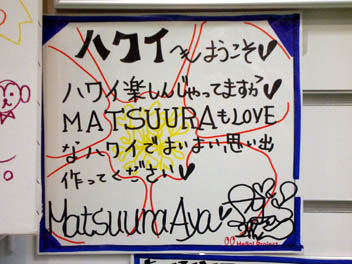 ハワイへようこそ♥
ハワイ楽しんじゃってますか?
MATSUURAもLOVE
なハワイでまいまい思い出
作ってください♥
Matsuura Aya♥
Hello! Project